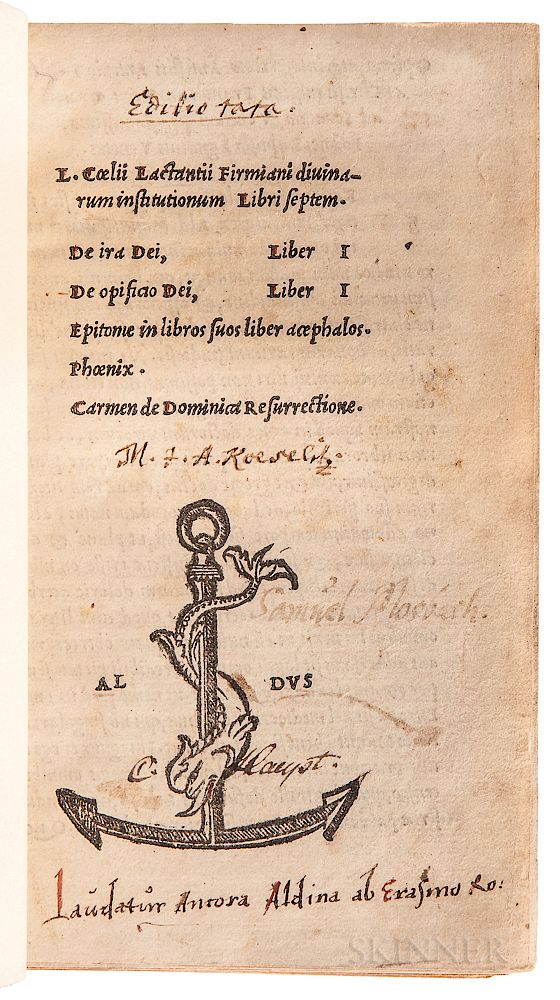 Editio rara.
L. Cœlii Lactantii Firmiani divina-
rum institutionum Libri septem.
De ira Dei, Liber I
De opificio Dei, Liber I
Epitome in libros suos liber acephalos.
Phœnix.
Carmen de Dominica Resurrectione.
M. J. A. Koeselitz.
Samuel
AL DVS
C. Haupt.
Laudatur Ancora Aldina ab Erasmo Ro:
SKINNER